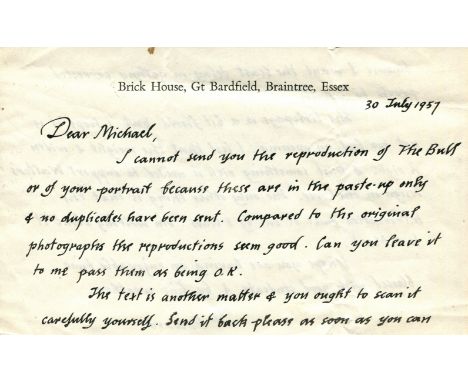 Brick House, Gt Bardfield, Braintree, Essex
30 July 1957
Dear Michael,
I cannot send you the reproduction of The Bull
or of your portrait because these are in the paste-up only
& no duplicates have been sent. Compared to the original
photographs the reproductions seem good. Can you leave it
to me pass them as being O.K.
The text is another matter & you ought to scan it
carefully yourself. Send it back please as soon as you can